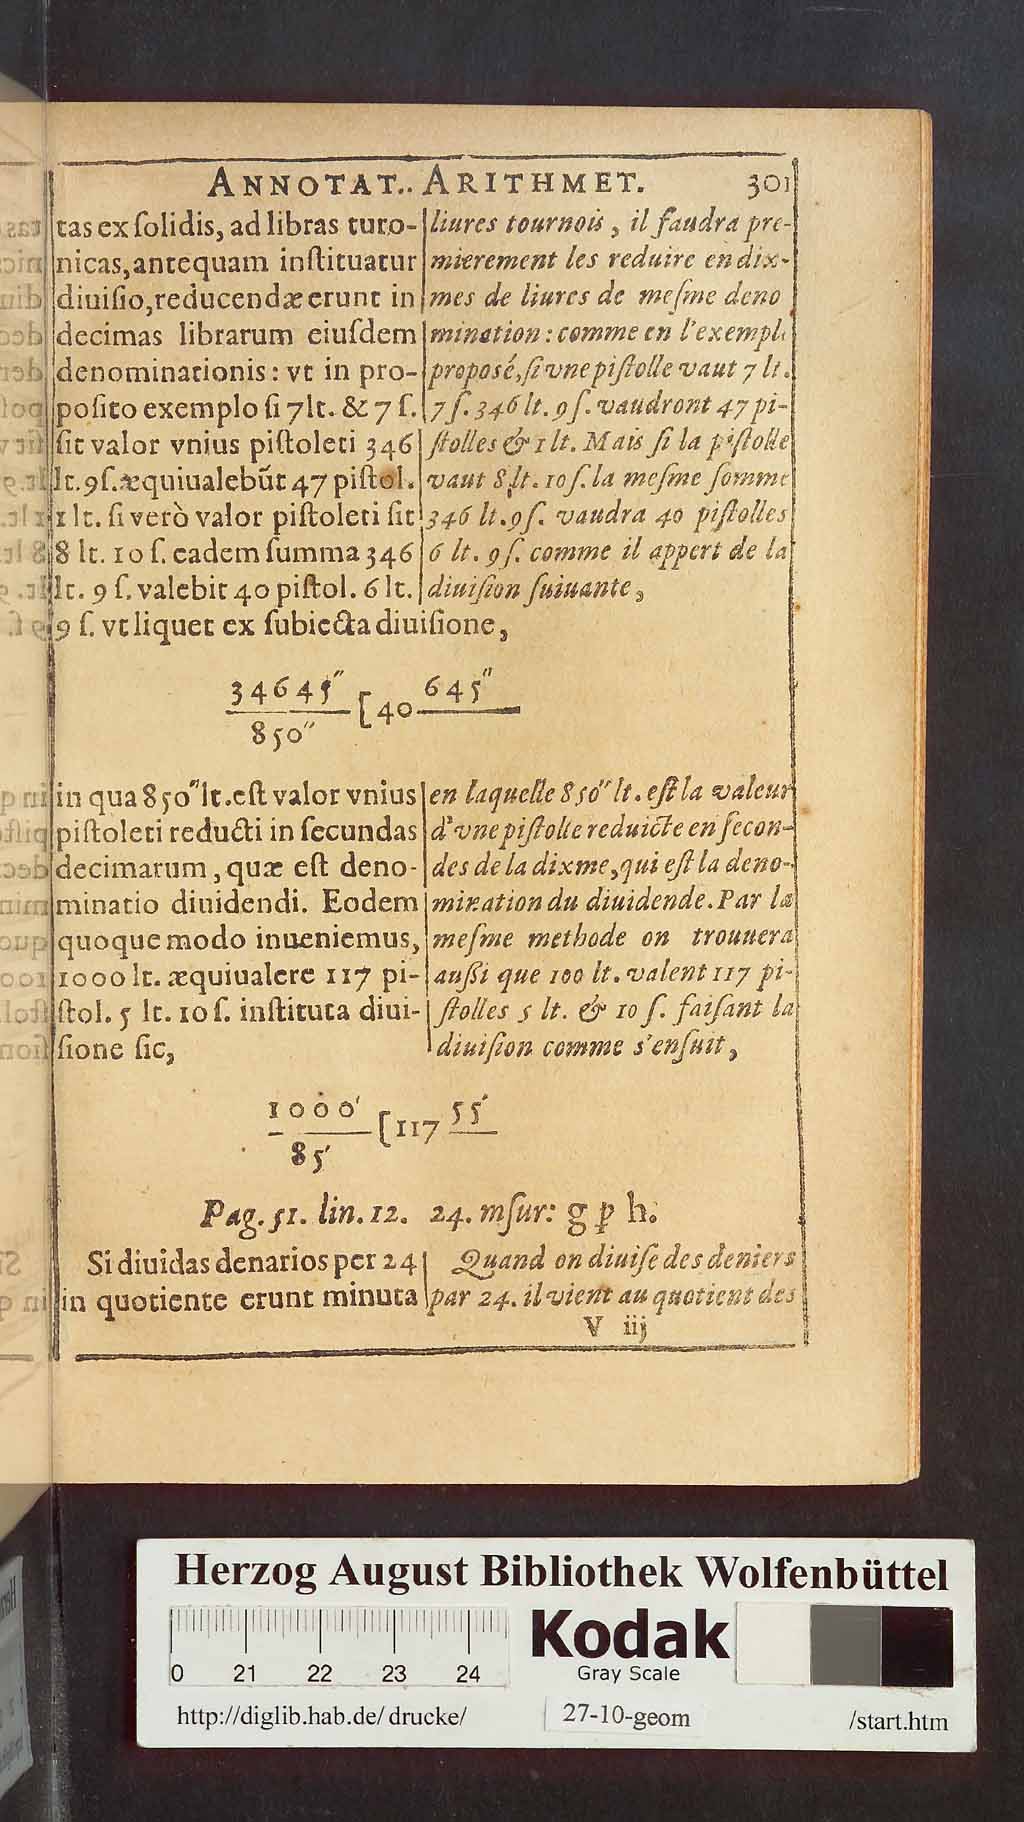 ANNOTAT.. ARITHMET. 301
tas ex ſolidis, ad libras turo-
nicas, antequam inſtituatur
diuiſio, reducendæ erunt in
decimas librarum eiuſdem
denominationis: vt in pro-
poſito exemplo ſi 7lt. & 7 ſ.
ſit valor vnius piſtoleti 346
lt. 9ſ. æquiualebũt 47 piſtol.
1 lt. ſi verò valor piſtoleti ſit
8 lt. 10 ſ. eadem ſumma 346
lt. 9 ſ. valebit 40 piſtol. 6 lt.
9 ſ. vt liquet ex ſubiecta diuiſione,
liures tournois, il faudra pre-
mierement les reduire en dix-
mes de liures de meſme deno
mination: comme en l'exempl
propoſé, ſi vne piſtolle vaut 7 lt.
7 ſ. 346 lt. 9 ſ. vaudront 47 pi-
ſtolles & 1 lt. Mais ſi la piſtolle
vaut 8 lt. 10 ſ. la meſme ſomme
346 lt. 9 ſ. vaudra 40 piſtolles
6 lt. 9 ſ. comme il appert de la
diuiſion ſuiuante,
34645″ [40 645″
850″
in qua 850″ lt. eſt valor vnius
piſtoleti reducti in ſecundas
decimarum, quæ eſt deno-
minatio diuidendi. Eodem
quoque modo inueniemus,
1000 lt. æquiualere 117 pi-
ſtol. 5 lt. 10 ſ. inſtituta diui-
ſione ſic,
en laquelle 850″ lt. eſt la valeur
d'vne piſtolle reduicte en ſecon-
des de la dixme, qui eſt la deno-
mination du diuidende. Par la
meſme methode on trouuera
außi que 100 lt. valent 117 pi-
ſtolles 5 lt. & 10 ſ. faiſant la
diuiſion comme s'enſuit,
1000′ [117 55′
85′
Pag. 51. lin. 12. 24. mſur: g p h.
Si diuidas denarios per 24
in quotiente erunt minuta
Quand on diuiſe des deniers
par 24. il vient au quotient des
V iij
Herzog August Bibliothek Wolfenbüttel
0 21 22 23 24
Kodak
Gray Scale
http://diglib.hab.de/ drucke/ 27-10-geom /start.htm